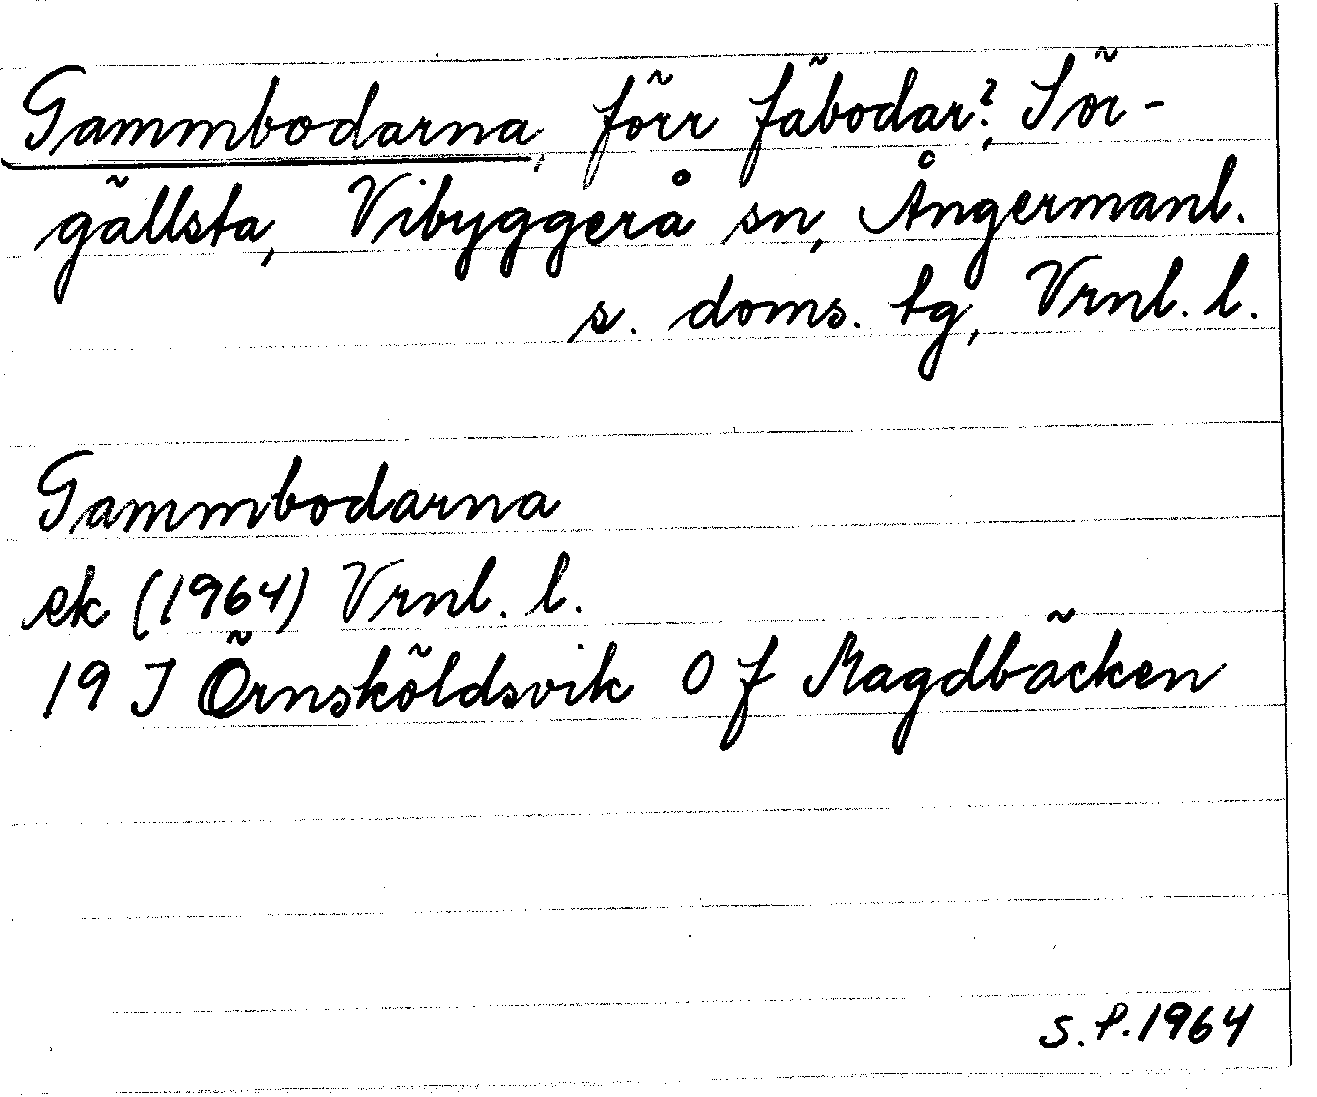 Gammbodarna, förr fäbodar?, Sör-
gällsta, Vibyggerå sn, Ångermanl.
s. doms. tg, Vrnl. l.
Gammbodarna
ek (1964) Vrnl. l.
19 J Örnsköldsvik O f Magdbäcken
S.P. 1964